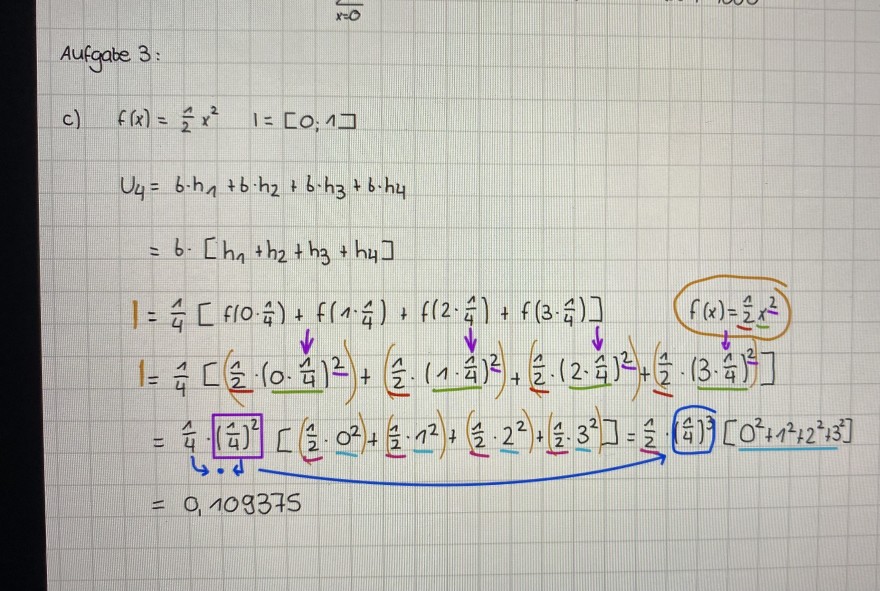 x=0
Aufgabe 3:
c) f(x) = 1/2 x² I = [0; 1]
U₄ = b·h₁ + b·h₂ + b·h₃ + b·h₄
= b · [h₁ + h₂ + h₃ + h₄]
= 1/4 [ f(0·1/4) + f(1·1/4) + f(2·1/4) + f(3·1/4) ] f(x) = 1/2 x²
= 1/4 [ (1/2 · (0·1/4)²) + (1/2 · (1·1/4)²) + (1/2 · (2·1/4)²) + (1/2 · (3·1/4)²) ]
= 1/4 · (1/4)² [ (1/2 · 0²) + (1/2 · 1²) + (1/2 · 2²) + (1/2 · 3²) ] = 1/2 · (1/4)³ [0² + 1² + 2² + 3²]
= 0,109375